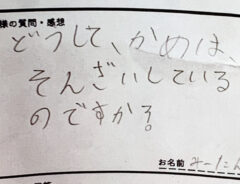 様の質問・感想
どうして、かめは、
そんざいしている
のですか?
お名前 みーたん